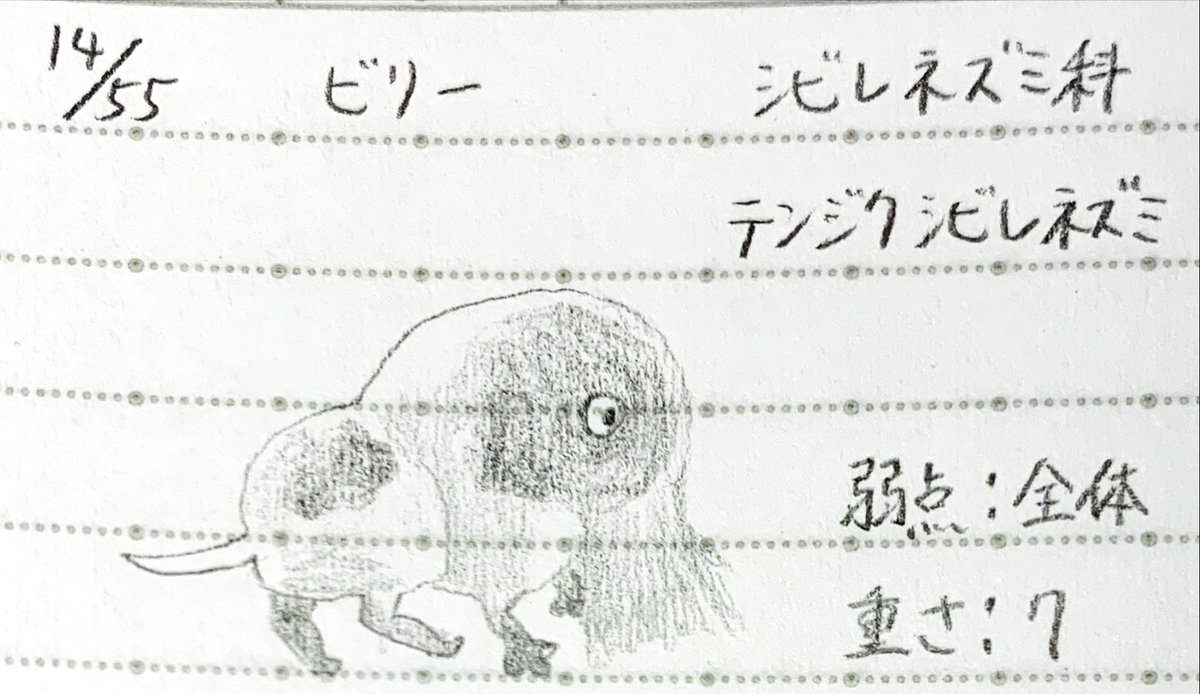 14/55 ビリー シビレネズミ科
テンジクシビレネズミ
弱点:全体
重さ:7